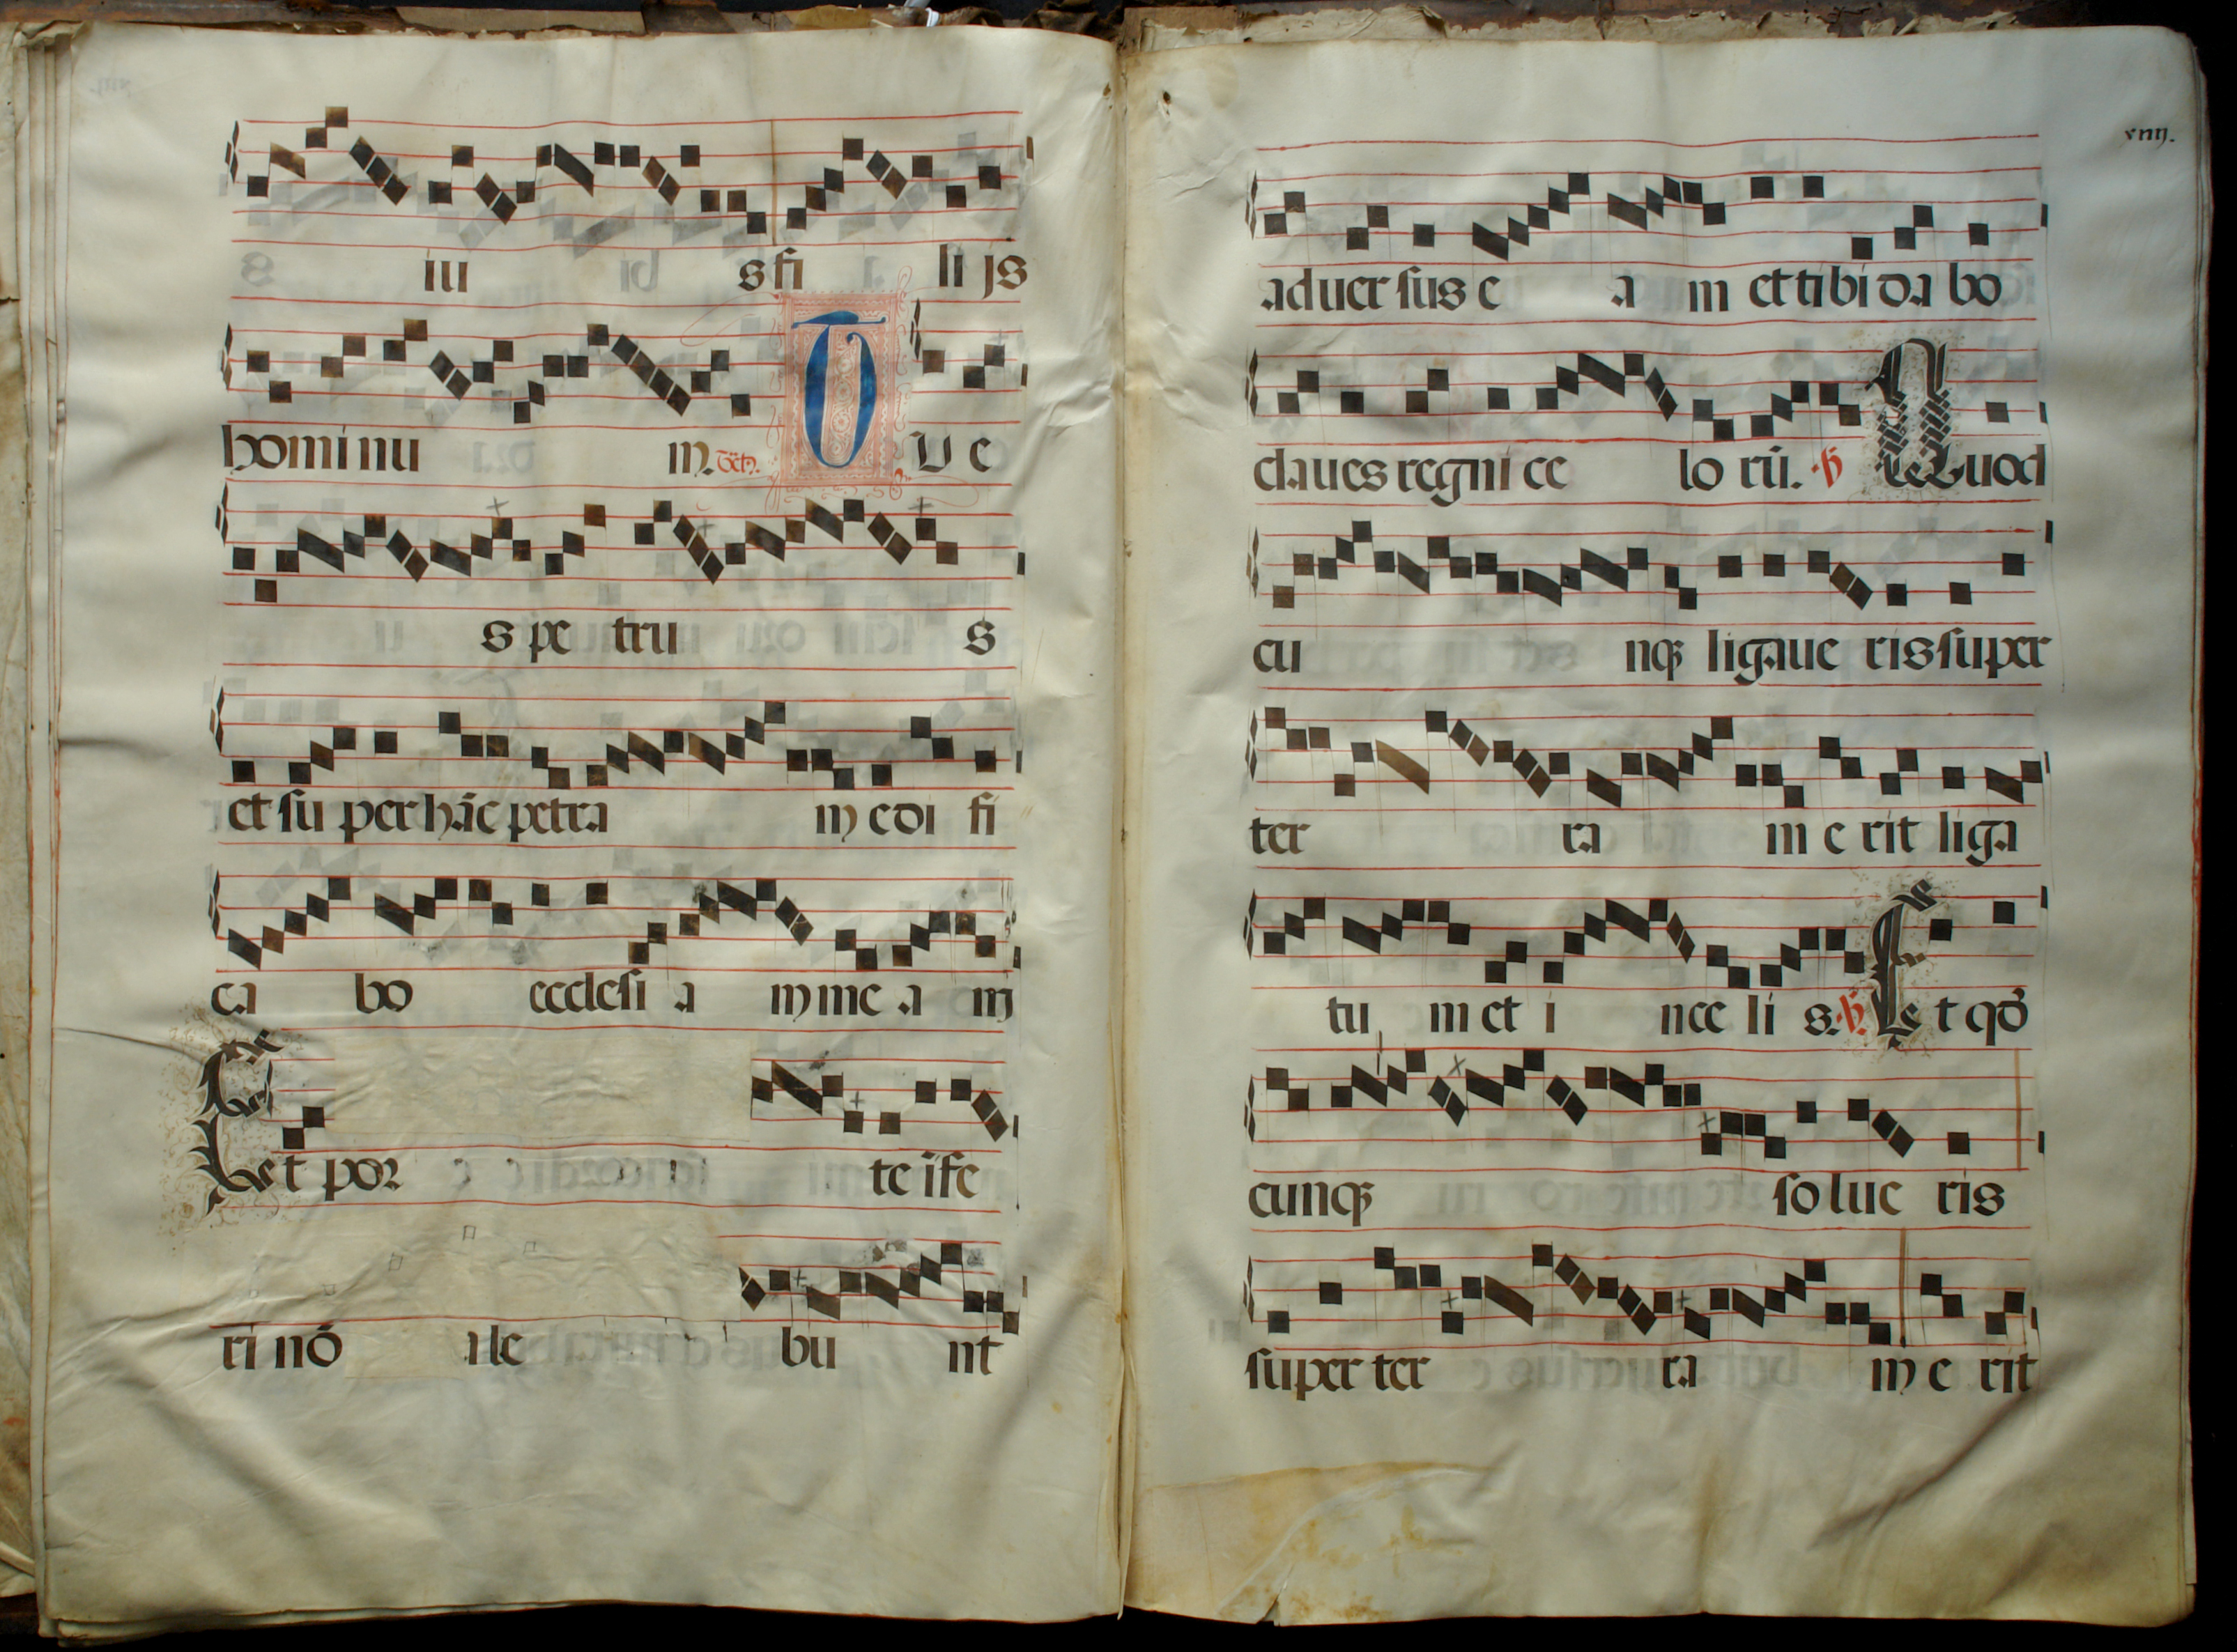 s iu s fi li js
homi nu m. Tct. T U e
s pe tru s
et su per hāc petra m edi fi
ca bo ecclesi a m me a m
Et por te ife
ri nō ale bu nt
xiiij.
aduer sus e a m et tibi da bo
claues regni ce lo rū. ℟ Quod
cu nqꝫ ligaue ris super
ter ra m e rit liga
tu m et i n ce li s. ℟. Et qđ
cunqꝫ solue ris
super ter ra m e rit